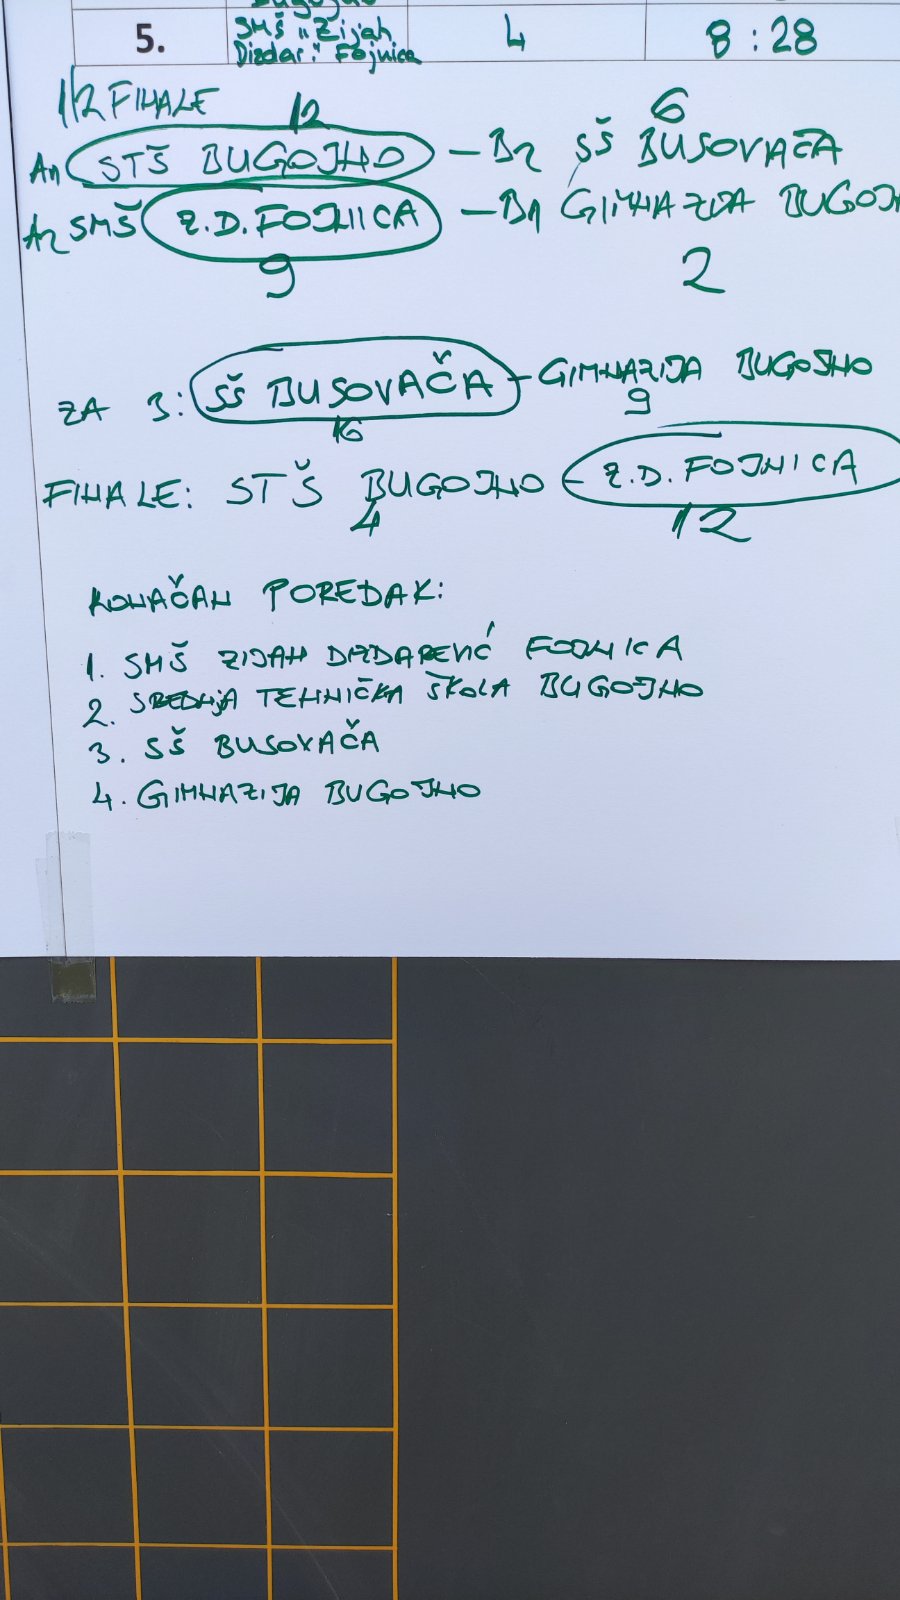 5. SMŠ "Zijah Dizdar." Fojnica 4 8:28
1/2 FINALE
12 6
A1 STŠ BUGOJNO - B2 SŠ BUSOVAČA
A2 SMŠ Z.D. FOJNICA - B1 GIMNAZIJA BUGOJN
9 2
ZA 3: SŠ BUSOVAČA - GIMNAZIJA BUGOJNO
16 9
FINALE: STŠ BUGOJNO - Z.D. FOJNICA
4 12
KONAČAN POREDAK:
1. SMŠ ZIJAH DIZDAREVIĆ FOJNICA
2. SREDNJA TEHNIČKA ŠKOLA BUGOJNO
3. SŠ BUSOVAČA
4. GIMNAZIJA BUGOJNO